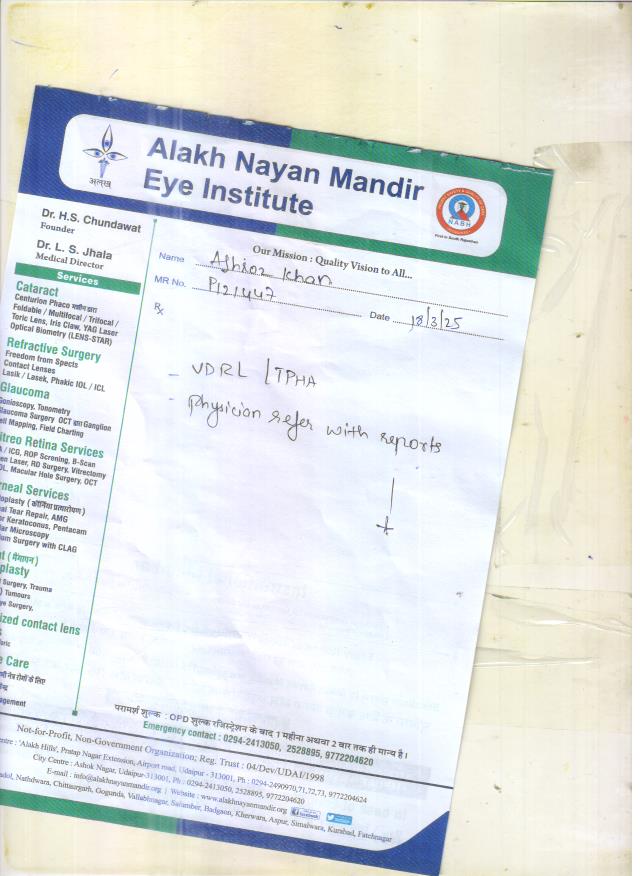 अलख
Alakh Nayan Mandir
Eye Institute
NABH
First in South Rajasthan
Dr. H.S. Chundawat
Founder
Dr. L. S. Jhala
Medical Director
Services
Cataract
Centurion Phaco मशीन द्वारा
Foldable / Multifocal / Trifocal /
Toric Lens, Iris Claw, YAG Laser
Optical Biometry (LENS-STAR)
Refractive Surgery
Freedom from Spects
Contact Lenses
Lasik / Lasek, Phakic IOL / ICL
Glaucoma
Gonioscopy, Tonometry
Glaucoma Surgery OCT Ganglion
ell Mapping, Field Charting
itreo Retina Services
A / ICG, ROP Screning, B-Scan
en Laser, RD Surgery, Vitrectomy
OL, Macular Hole Surgery, OCT
rneal Services
oplasty (कॉर्निया प्रत्यारोपण)
al Tear Repair, AMG
or Keratoconus, Pentacam
lar Microscopy
ium Surgery with CLAG
t (भैंगापन)
plasty
Surgery, Trauma
) Tumours
ye Surgery,
ized contact lens
e Care
agement
Our Mission : Quality Vision to All...
Name Khan
MR No. P121447
Rx Date 18/3/25
- VDRL / TPHA
- Physician refer with reports
परामर्श शुल्क : OPD शुल्क रजिस्ट्रेशन के बाद 1 महीना अथवा 2 बार तक ही मान्य है।
Emergency contact : 0294-2413050, 2528895, 9772204620
Not-for-Profit, Non-Government Organization; Reg. Trust : 04/Dev/UDAI/1998
entre : 'Alakh Hills', Pratap Nagar Extension, Airport road, Udaipur - 313001, Ph : 0294-2490970,71,72,73, 9772204624
City Centre : Ashok Nagar, Udaipur-313001, Ph : 0294-2413050, 2528895, 9772204620
E-mail : info@alakhnayanmandir.org | Website : www.alakhnayanmandir.org facebook twitter
Nathdwara, Chittaurgarh, Gogunda, Vallabhnagar, Salumber, Badgaon, Kherwara, Aspur, Simalwara, Kurabad, Fatehnagar